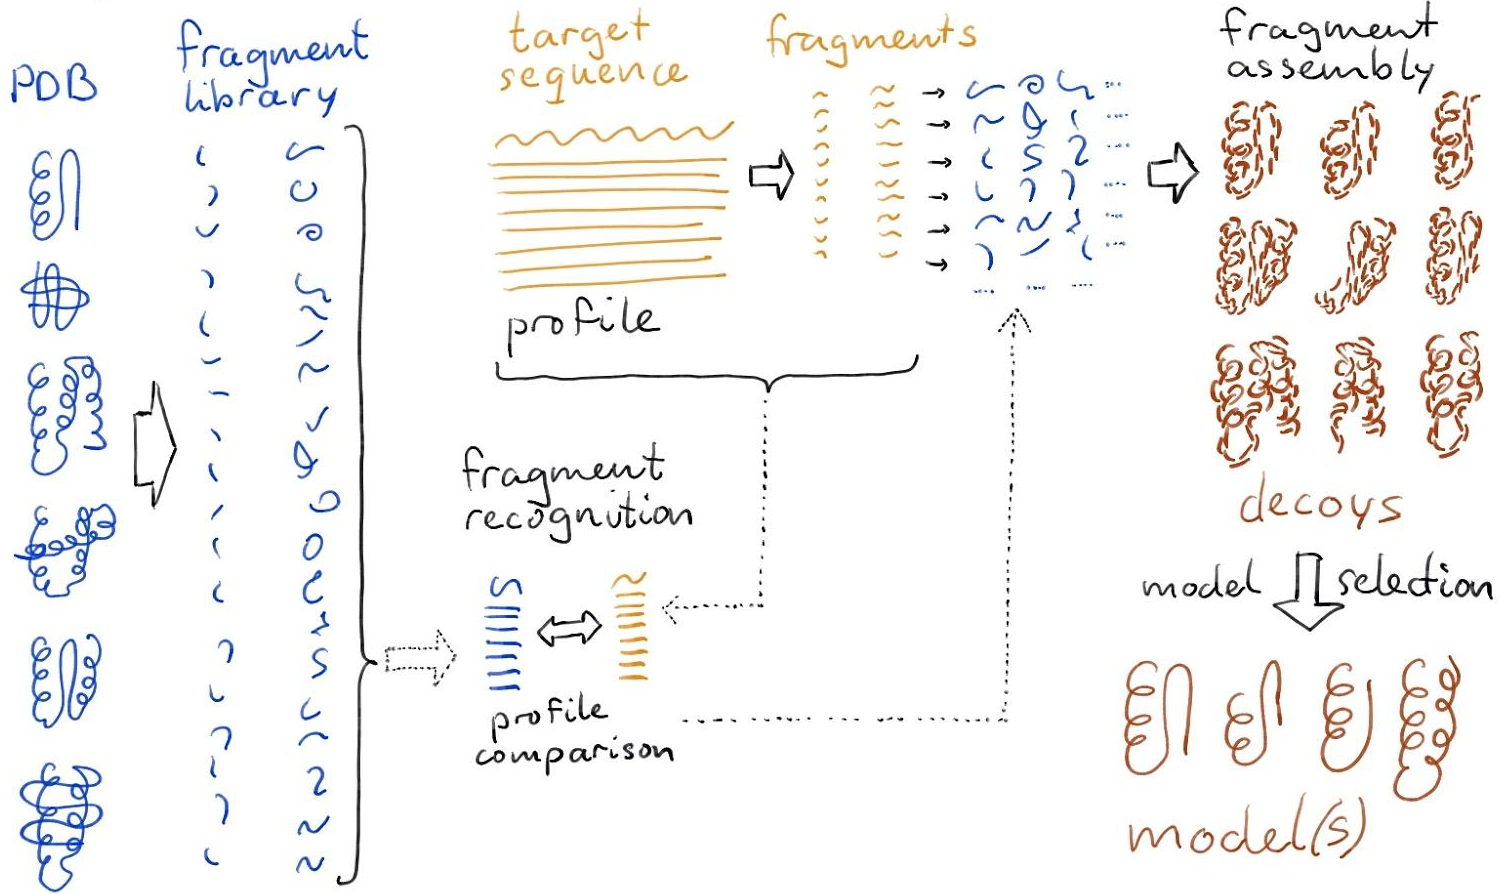 PDB
fragment
library
target
sequence
fragments
fragment
assembly
profile
fragment
recognition
profile
comparison
decoys
model selection
model(s)